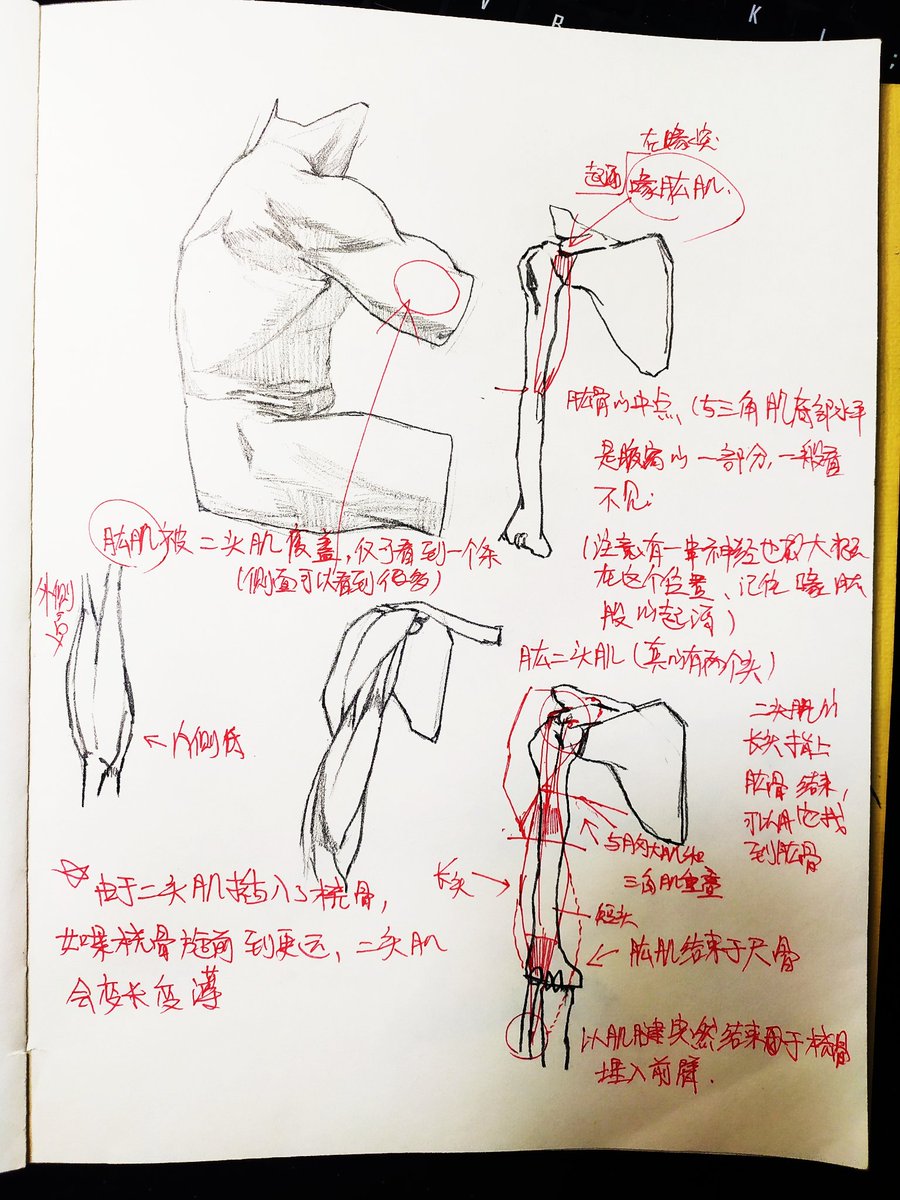 K
L
;
在喙突
起源
喙肱肌.
肱骨的中点、(与三角肌底部水平
是腋窝的一部分,一般看
不见.
(注意有一串神经也
在这个位置、记住喙肱
肌的起源)
肱肌被二头肌覆盖,仅可看到一个条
(侧面可以看到很多)
外侧高
←内侧低
肱二头肌(真的有两个头)
二头肌的
长头
肱骨结束,
可以用它找
到肱骨
与胸大肌和
三角肌重叠
长头
短头
肱肌结束于尺骨
以肌腱突然结束于桡骨
埋入前臂.
☆由于二头肌插入了桡骨,
如果桡骨旋前到更远,二头肌
会变长变薄